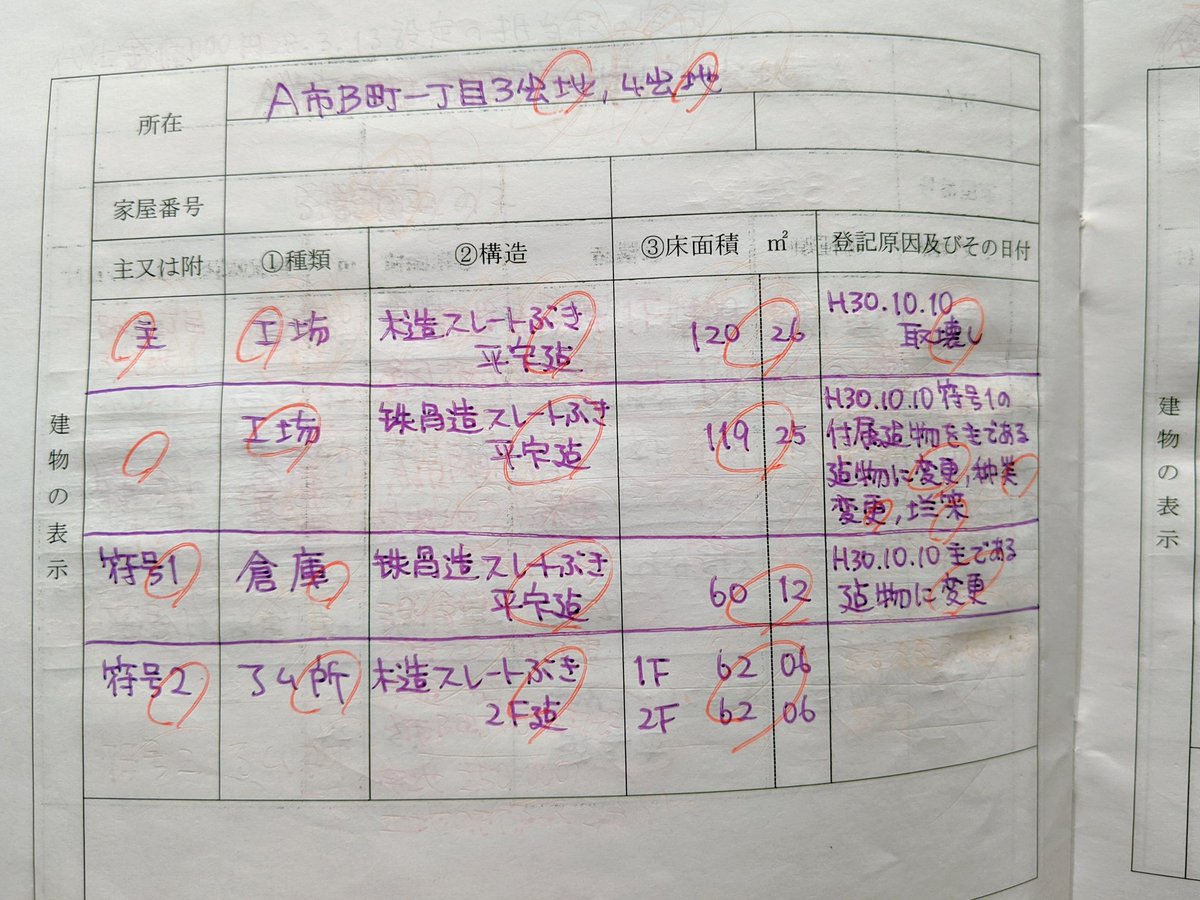 建物の表示
所在
A市B町一丁目3番地, 4番地
家屋番号
主又は附 ①種類 ②構造 ③床面積 ㎡ 登記原因及びその日付
主 工場 木造スレートぶき 120 26 H30.10.10
平家建 取壊し
工場 鉄骨造スレートぶき 119 25 H30.10.10 符号1の
平家建 付属建物を主である
建物に変更, 種類
変更, 増築
符号1 倉庫 鉄骨造スレートぶき 60 12 H30.10.10 主である
平家建 建物に変更
符号2 事ム所 木造スレートぶき 1F 62 06
2F建 2F 62 06
建物の表示